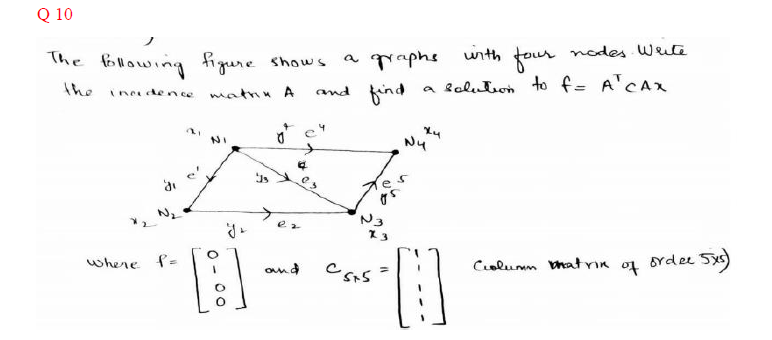 Q 10
The following figure shows a graphs with four nodes. Write
the incidence matrix A and find a solution to f = AᵀCAx
x₁ N1 y⁴ e⁴ N4 x₄
y₁ e¹ y₃ e₃ e⁵ y⁵
x₂ N₂ y₂ e₂ N3 x₃
where f = [0 1 0 0] and C₅ₓ₅ = [1 1 1 1 1] Column matrix of order 5x5)